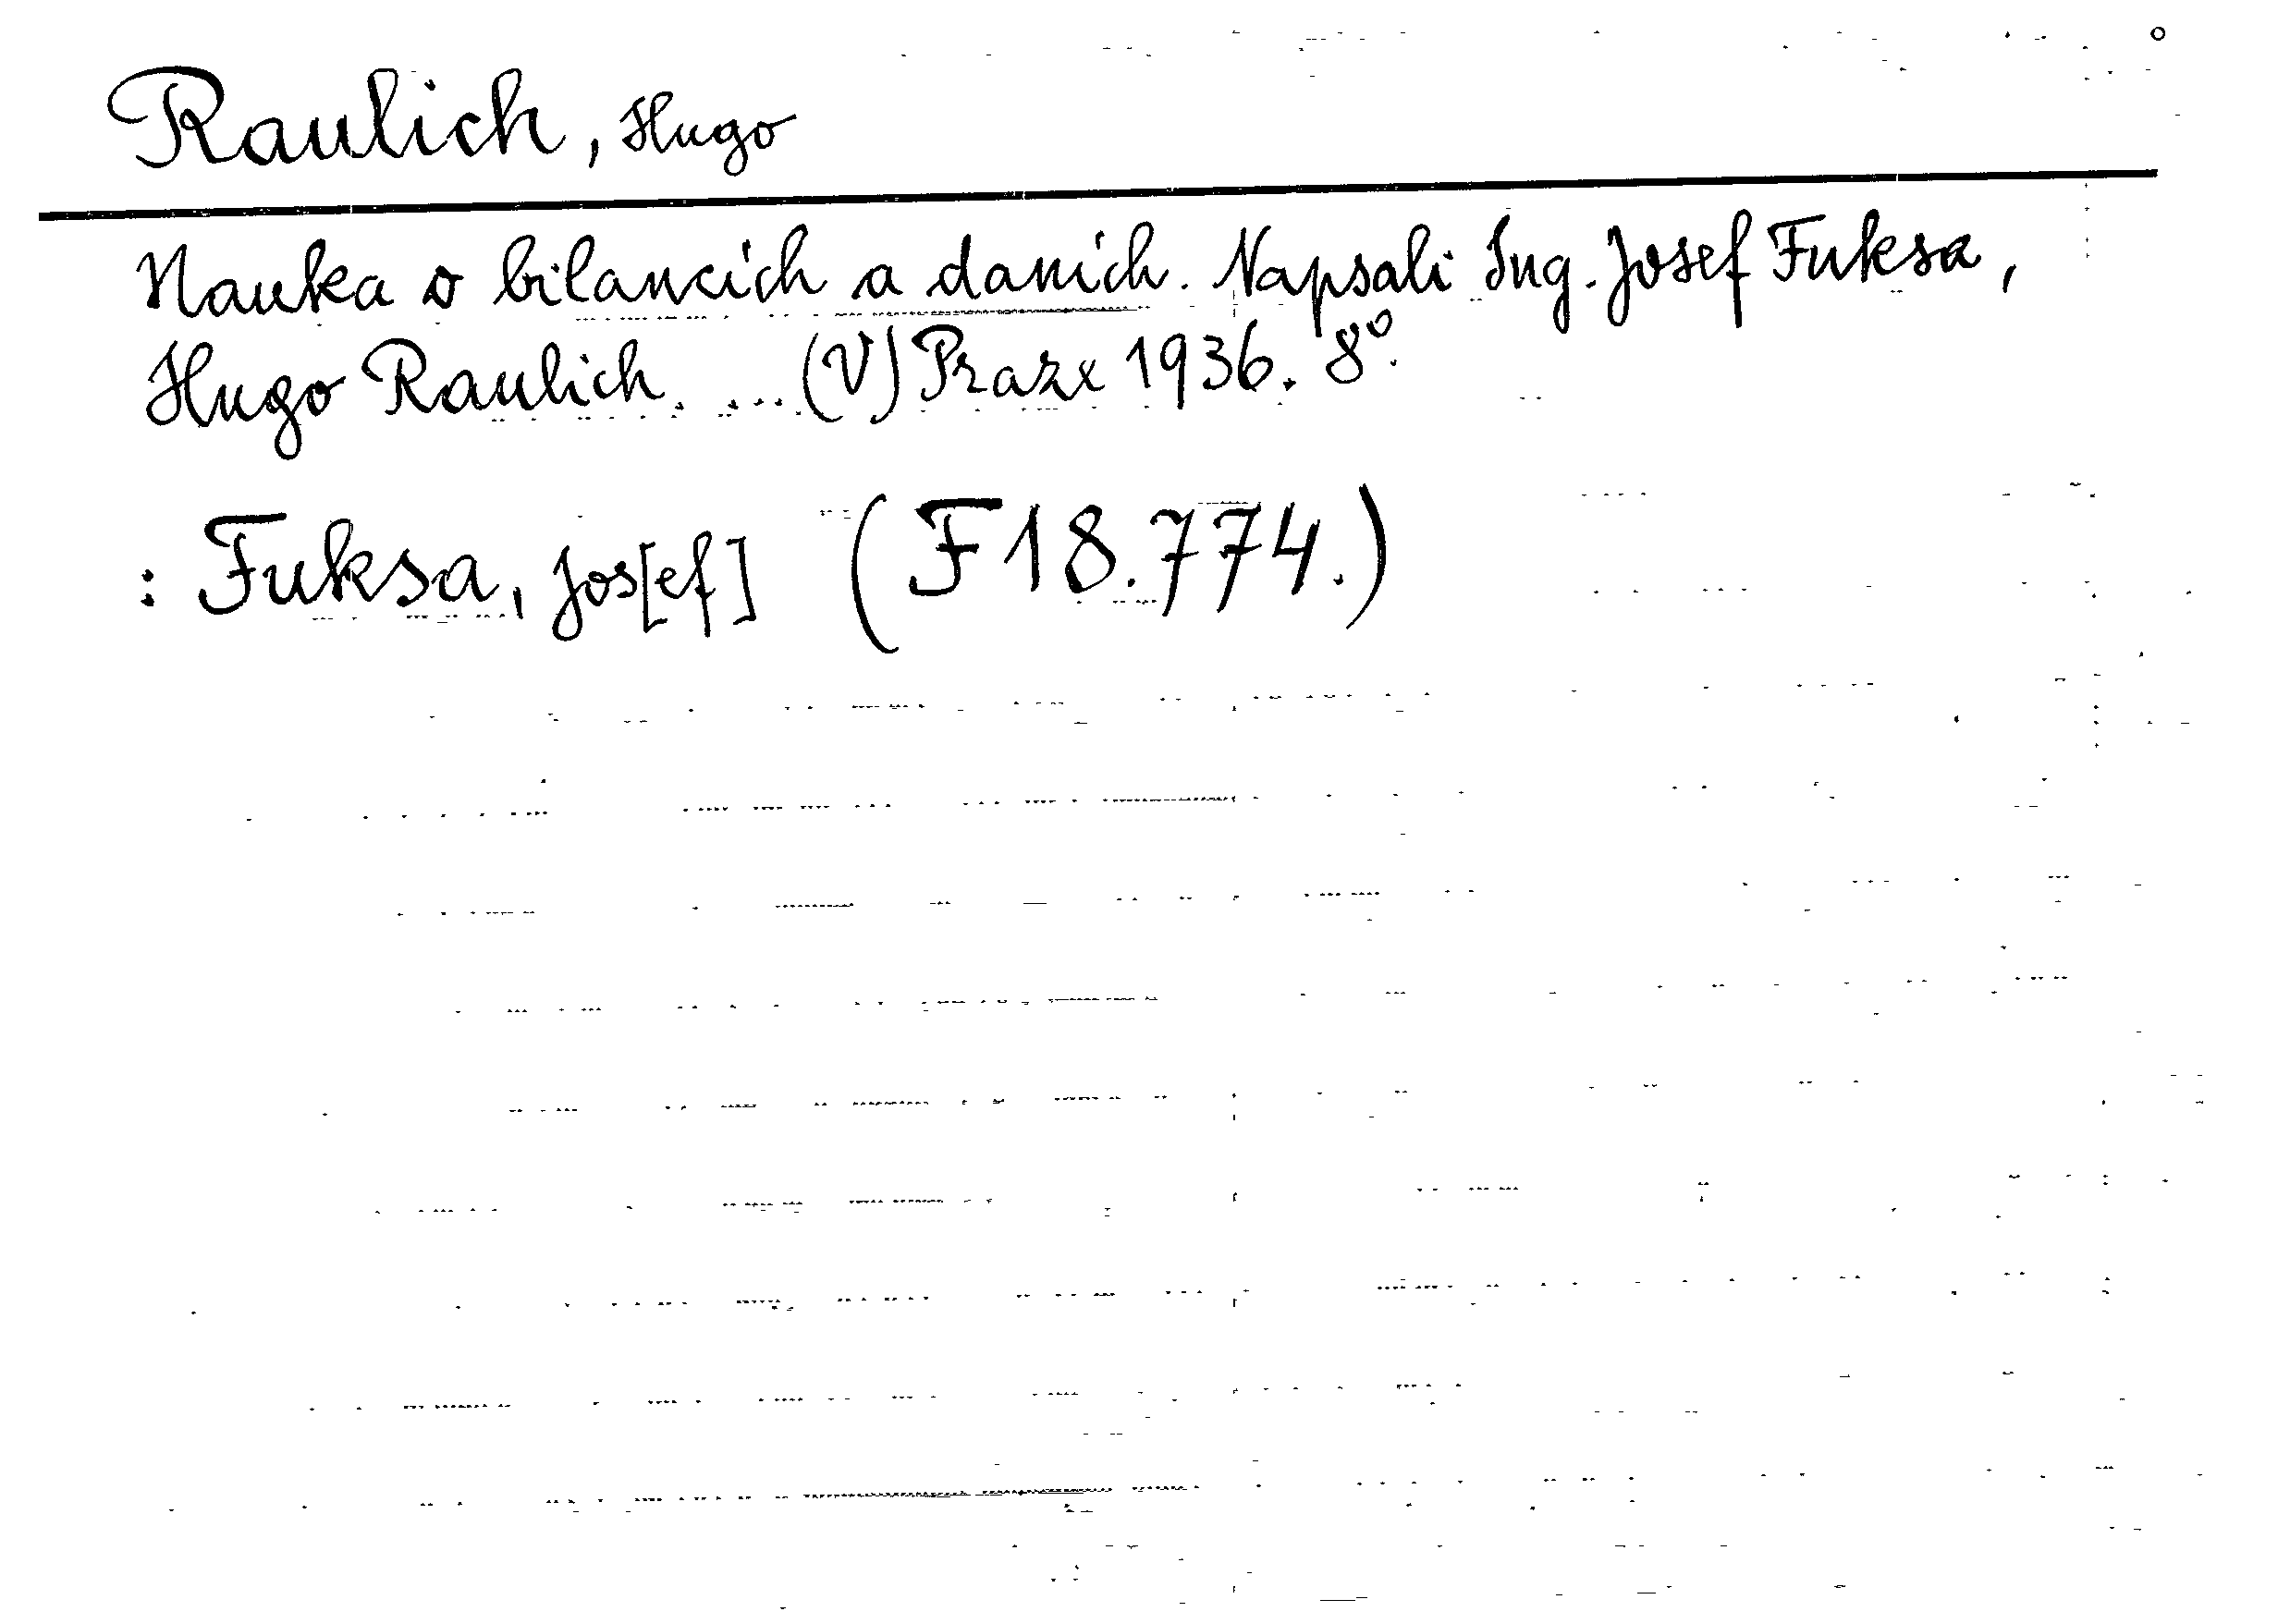 Raulich, Hugo
Nauka o bilancích a daních. Napsali Ing. Josef Fuksa,
Hugo Raulich. ... (V) Praze 1936. 8°.
: Fuksa, Jos[ef] (F18.774.)